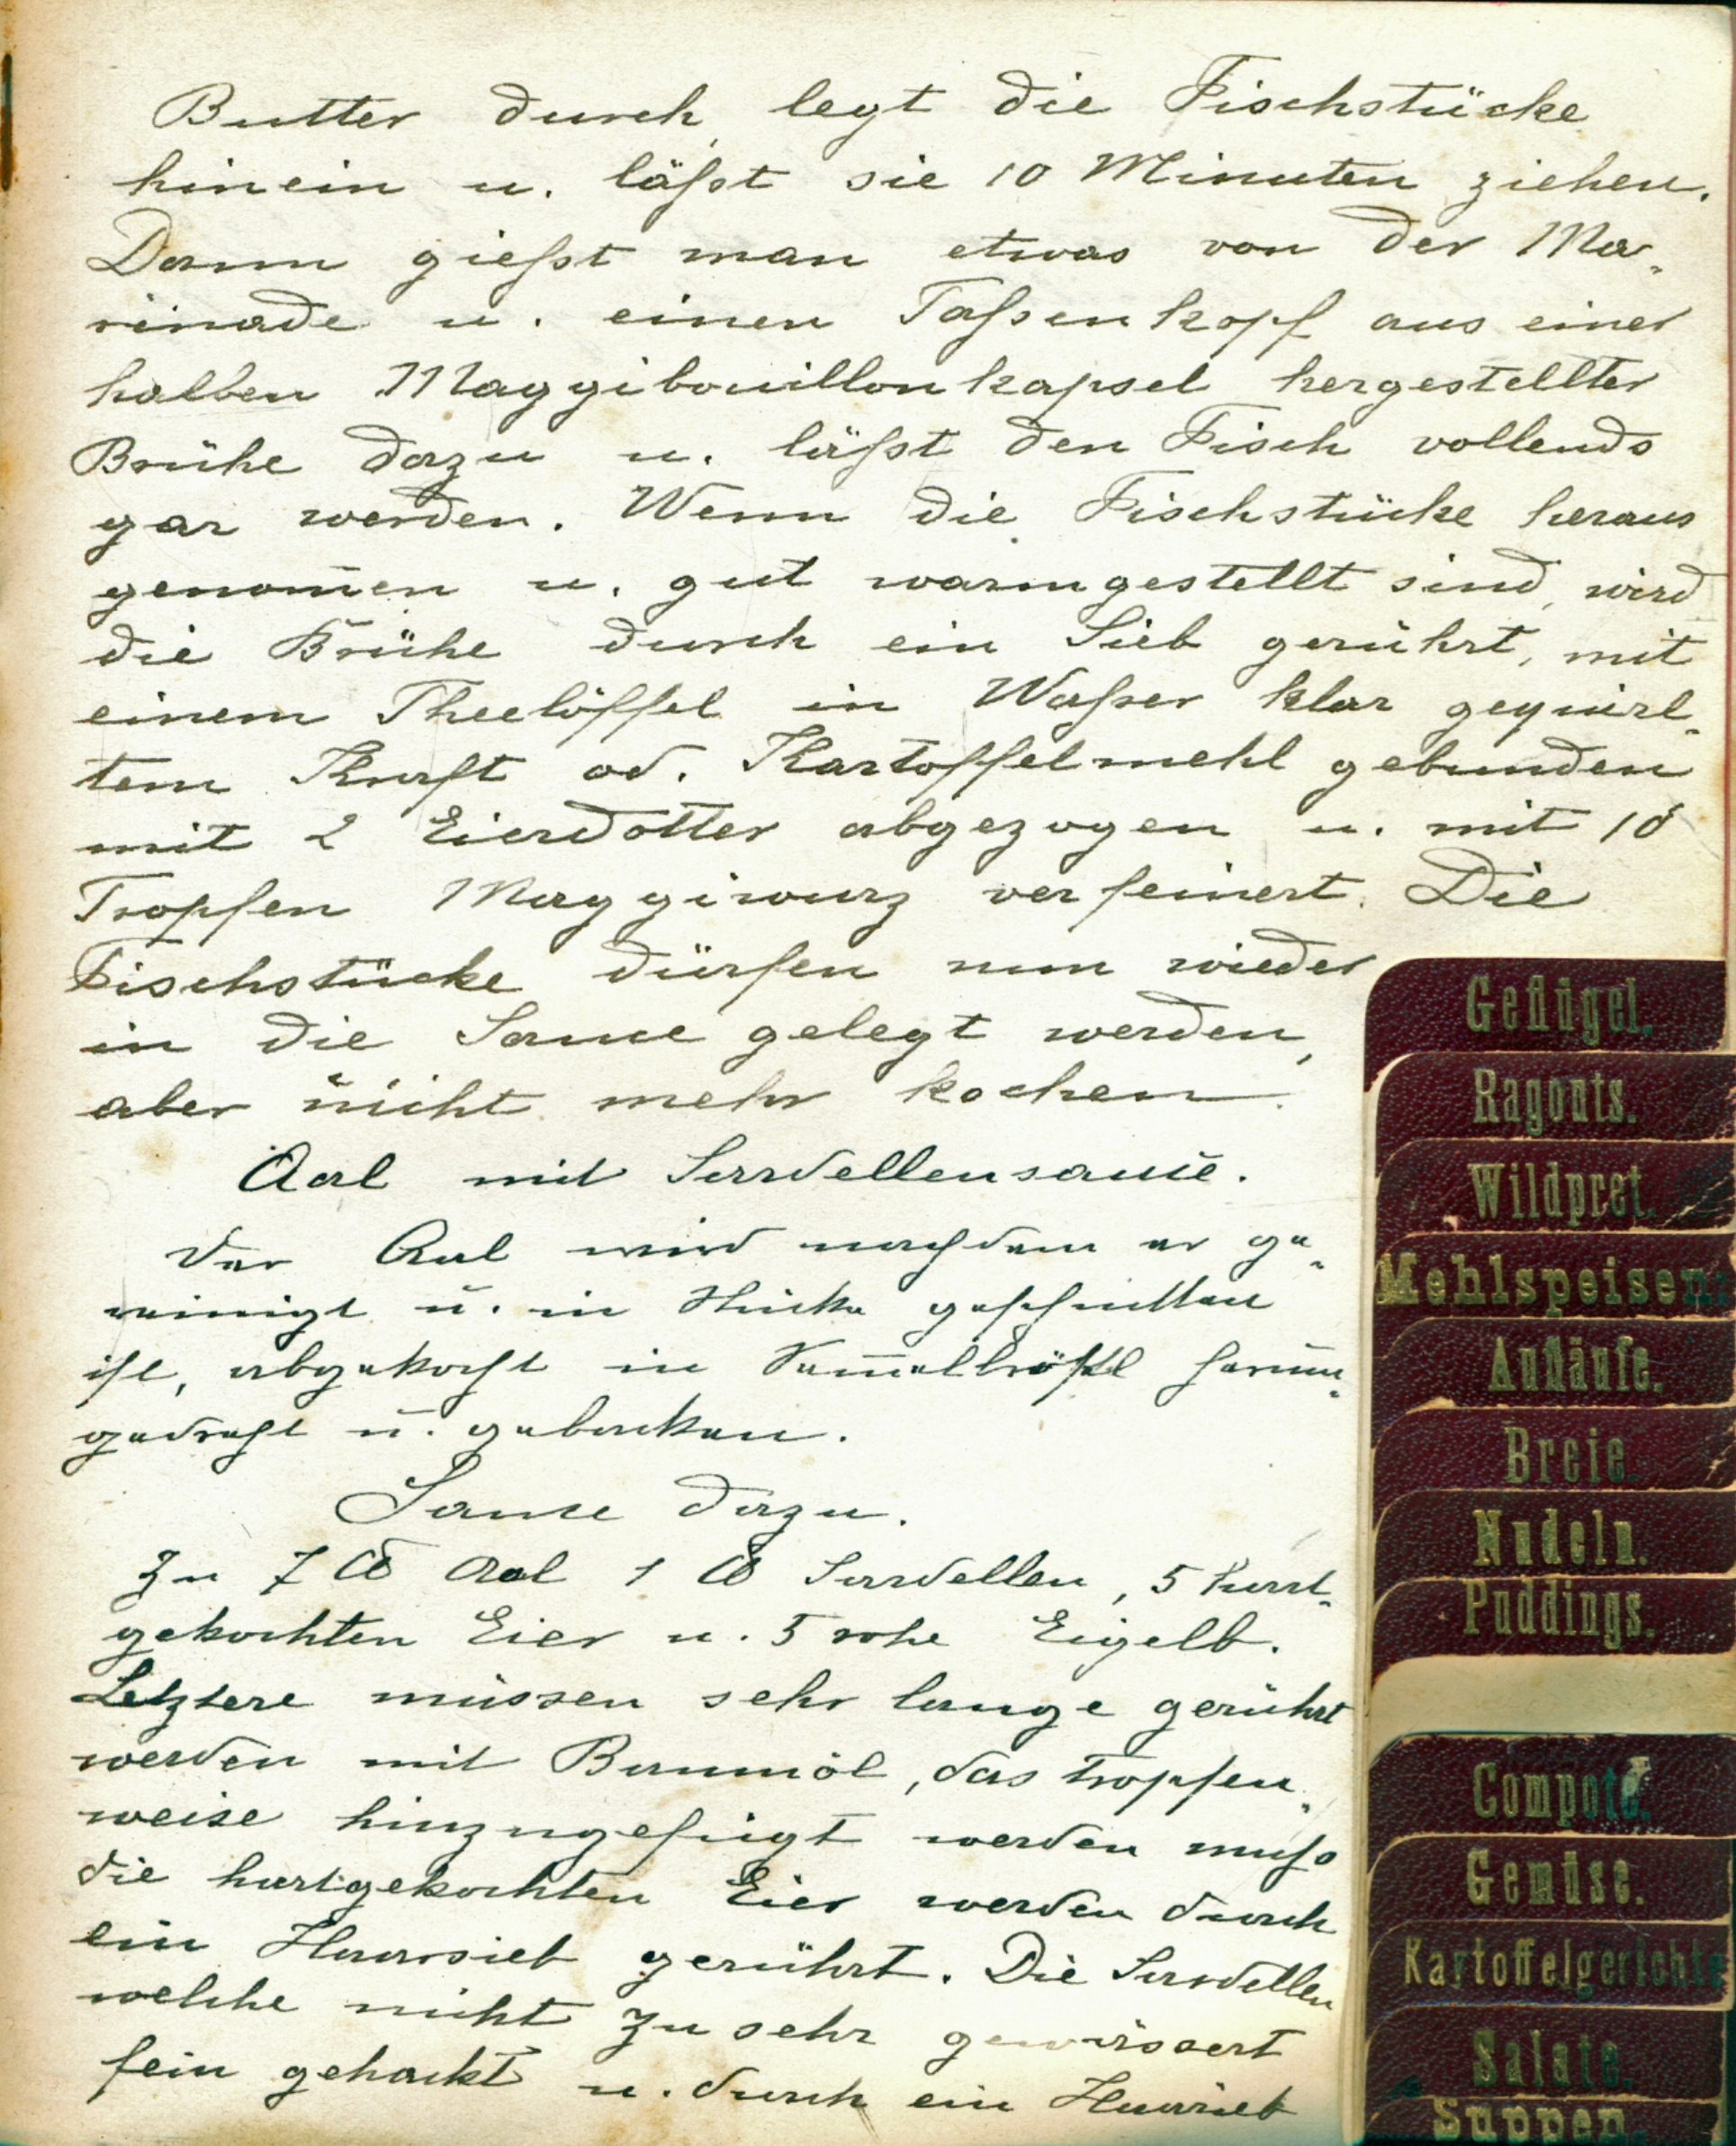 Butter durch, legt die Fischstücke
hinein u. läßt sie 10 Minuten ziehen.
Dann gießt man etwas von der Ma-
rinade u. einen Taßenkopf aus einer
halben Maggibouillonkapsel hergestellter
Brühe dazu u. läßt den Fisch vollends
gar werden. Wenn die Fischstücke heraus
genom̄en u. gut warmgestellt sind, wird
die Brühe durch ein Sieb gerührt, mit
einem Theelöffel in Waßer klar gequirl-
tem Kraft od. Kartoffelmehl gebunden
mit 2 Eierdotter abgezogen u. mit 10
Tropfen Maggiwurz verfeinert. Die
Fischstücke dürfen nun wieder
in die Sauce gelegt werden,
aber nicht mehr kochen.
Aal mit Sardellensauce.
Der Aal wird nachdem er ge-
reinigt u. in Stücke geschnitten
ist, abgekocht in Sem̄elbrösel herum-
gedreht u. gebacken.
Sauce dazu.
Zu 7 ℔ Aal 1 ℔ Sardellen, 5 hart-
gekochten Eier u. 5 rohe Eigelb.
Letztere müssen sehr lange gerührt
werden mit Baumöl, das tropfen-
weise hinzugefügt werden muß
die hartgekochten Eier werden durch
ein Haarsieb gerührt. Die Sardellen
welche nicht zu sehr gewässert
fein gehackt u. durch ein Haarsieb
Geflügel.
Ragouts.
Wildpret.
Mehlspeisen:
Aufläufe.
Breie.
Nudeln.
Puddings.
Compote.
Gemüse.
Kartoffelgerichte
Salate.
Suppen.